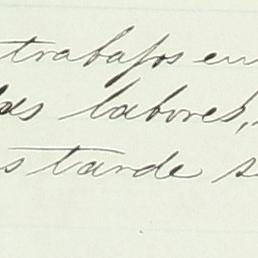 trabajos en
las labores,
s tarde s